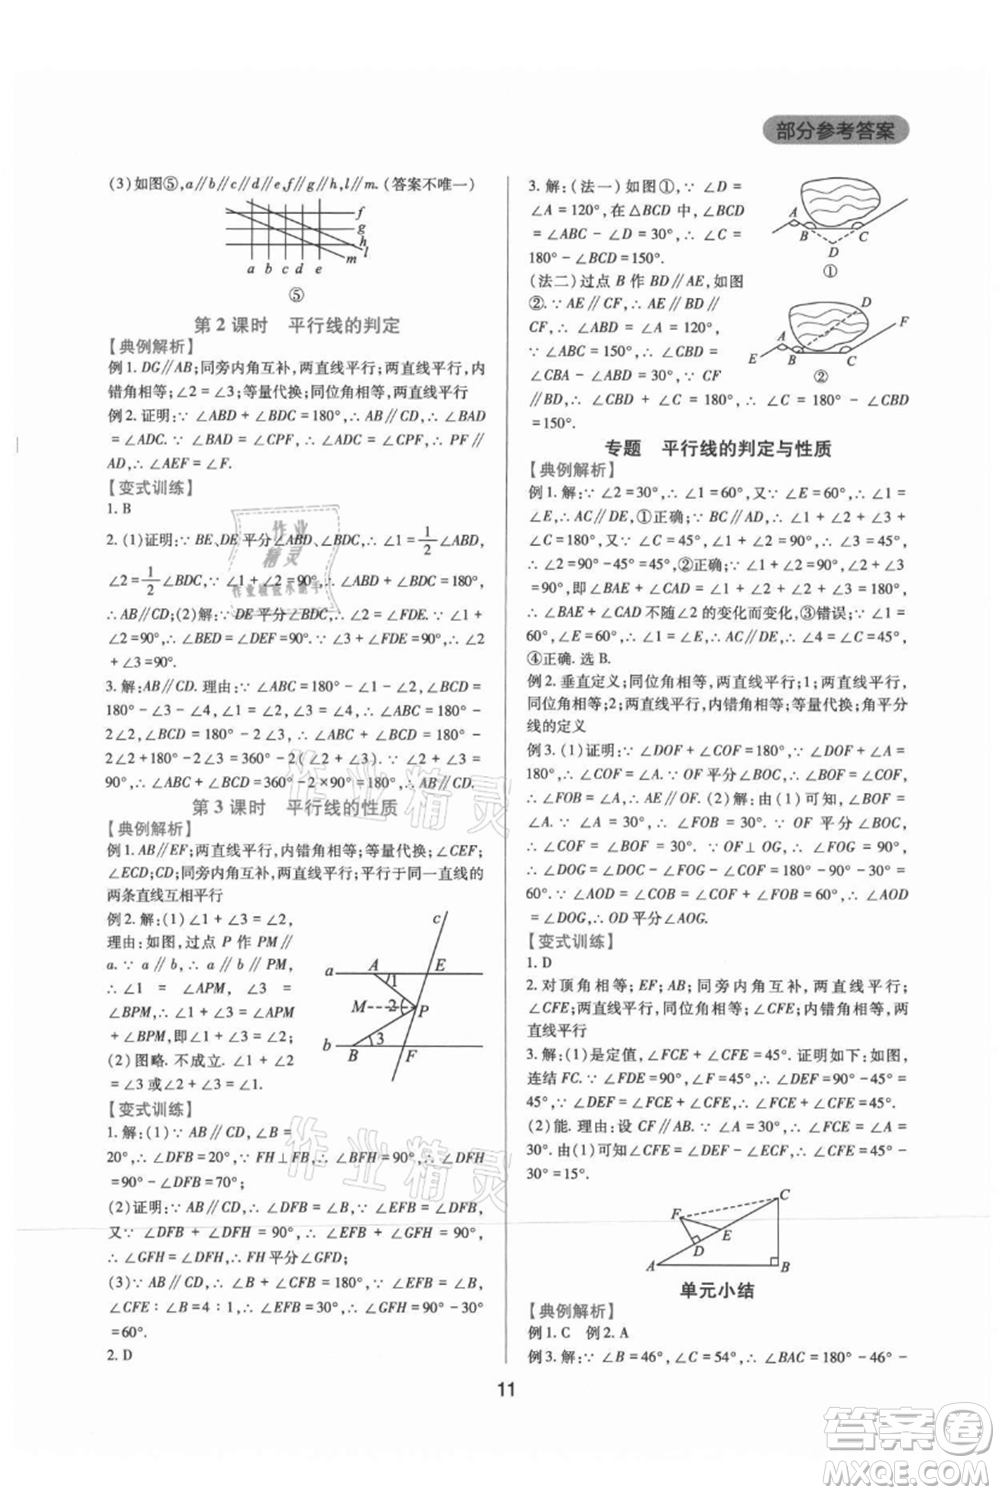 部分参考答案
(3)如图⑤,a∥b∥c∥d∥e,f∥g∥h,l∥m.(答案不唯一)
f
g
h
l
m
a b c d e
⑤
第 2 课时 平行线的判定
【典例解析】
例 1. DG∥AB;同旁内角互补,两直线平行;两直线平行,内
错角相等;∠2=∠3;等量代换;同位角相等,两直线平行
例 2. 证明:∵∠ABD+∠BDC=180°,∴AB∥CD,∴∠BAD
=∠ADC.∵∠BAD=∠CPF,∴∠ADC=∠CPF,∴PF∥
AD,∴∠AEF=∠F.
【变式训练】
1. B
2. (1)证明:∵BE、DE 平分∠ABD、∠BDC,∴∠1=1/2∠ABD,
∠2=1/2∠BDC,∵∠1+∠2=90°,∴∠ABD+∠BDC=180°,
∴AB∥CD;(2)解:∵DE 平分∠BDC,∴∠2=∠FDE.∵∠1
+∠2=90°,∴∠BED=∠DEF=90°,∴∠3+∠FDE=90°,∴∠2
+∠3=90°.
3. 解:AB∥CD. 理由:∵∠ABC=180°-2∠1,∠BCD=
180°-2∠3,∠1=∠2,∠3=∠4,∴∠ABC=180°-
2∠2,∠BCD=180°-2∠3,∴∠ABC+∠BCD=180°-
2∠2+180°-2∠3=360°-2(∠2+∠3).∵∠2+∠3=
90°,∴∠ABC+∠BCD=360°-2×90°=180°,∴AB∥CD.
第 3 课时 平行线的性质
【典例解析】
例 1. AB∥EF;两直线平行,内错角相等;等量代换;∠CEF;
∠ECD;CD;同旁内角互补,两直线平行;平行于同一直线的
两条直线互相平行
例 2. 解:(1)∠1+∠3=∠2,
理由:如图,过点 P 作 PM∥
a.∵a∥b,∴PM∥a∥b,
∴∠1=∠APM,∠3=
∠BPM,∴∠1+∠3=∠APM
+∠BPM,即∠1+∠3=∠2;
(2)图略. 不成立. ∠1=∠2
+∠3或∠3=∠1+∠2.
c
a A E
1
M 2 P
b B 3 F
【变式训练】
1. 解:(1)∵AB∥CD,∠B=
20°,∴∠DFB=20°,∵FH⊥FB,∴∠BFH=90°,∴∠DFH
=∠HFB-∠DFB=70°;
(2)证明:∵AB∥CD,∴∠DFB=∠B,∵∠EFB=∠B,
∴∠DFB=∠EFB,∵∠BFH=90°,∴∠DFB+∠DFH=90°,
又∵∠CFE+∠EFB+∠BFD+∠DFH+∠GFH=180°,
∴∠GFH=∠DFH,∴FH 平分∠GFD;
(3)∵AB∥CD,∴∠B+∠CFB=180°,∵∠EFB=∠B,
∠CFE:∠B=4:1,∴∠EFB=30°,∴∠GFH=90°-30°
=60°.
2. D
3. 解:(法一)如图①,∵∠D=
∠A=120°,在△BCD中,∠BCD
=∠ABC-∠D=30°,∴∠C=
180°-∠BCD=150°.
(法二)过点 B 作 BD∥AE,如图
②.∵AE∥CF,∴AE∥BD∥
CF,∴∠A=∠ABD=120°,∴
∠DBC=∠ABC-∠ABD=
150°-120°=30°.∵CF
∥BD,∴∠CBD+∠C=180°,∴∠C
=150°.
A B C D
①
E A B C D F
②
专题 平行线的判定与性质
【典例解析】
例 1. 解:∵∠2=30°,∴∠1=60°,又∵∠E=60°,∴∠1=
∠E,∴AC∥DE,①正确;∵BC∥AD,∴∠B+∠BAD=180°,
又∵∠B=45°,∴∠2=45°,②正确;∵∠BAE+∠CAD
=∠1+∠2+∠3+∠2=90°+90°=180°,∴∠BAE
+∠CAD 不随∠2 的变化而变化,③错误;∵∠1=
60°,∠E=60°,∴∠1=∠E,∴AC∥DE,∴∠4=∠C=45°,
④正确. 选 B.
例 2. 垂直定义;同位角相等,两直线平行;1;两直线平行,同
位角相等;2;两直线平行,内错角相等;等量代换;角平分
线的定义
例 3. (1)证明:∵∠DOF+∠COF=180°,又∵∠DOF+∠AOC
=180°,∴∠AOC=∠COF,∵OF 平分∠BOC,∴∠COF=∠BOF,
∴∠FOB=∠AOC;(2)解:由(1)可知,∠AOC=∠BOF=
∠COF,∵∠AOC=30°,∴∠FOB=30°.∵OF 平分∠BOC,
∴∠COF=∠BOF=30°.∵OF⊥OG,∴∠FOG=90°,∴∠DOG
=60°.∵∠AOD=∠COD-∠COA=150°,∴∠AOG=∠AOD
-∠DOG=150°-60°=90°.∵∠AOD=∠DOG,∴OD平分∠AOG.
【变式训练】
1. D
2. 对顶角相等;EF;AB;同旁内角互补,两直线平行;
∠CFE;两直线平行,同位角相等;∠CFE;内错角相等,两
直线平行
3. 解:(1)是定值,∠FCE+∠CFE=45°. 证明如下:如图,
连结FC.∵∠DEF=∠FCE+∠CFE,又∵∠DFE=∠DEF
=45°,∴∠DEF=∠FCE+∠CFE=45°;
(2)能. 理由:设CF∥AB,∵∠A=30°,∴∠FCE=∠A=
30°.由(1)可知,∠FCE+∠CFE=45°,∴∠CFE=45°-
30°=15°.
A B C D E F
单元小结
【典例解析】
例 1. C 例 2. A
例 3. 解:∵∠B=46°,∠C=54°,∴∠BAC=180°-46°-
11
答案卷
MXQE.COM
作业精灵
作业精灵
作业精灵